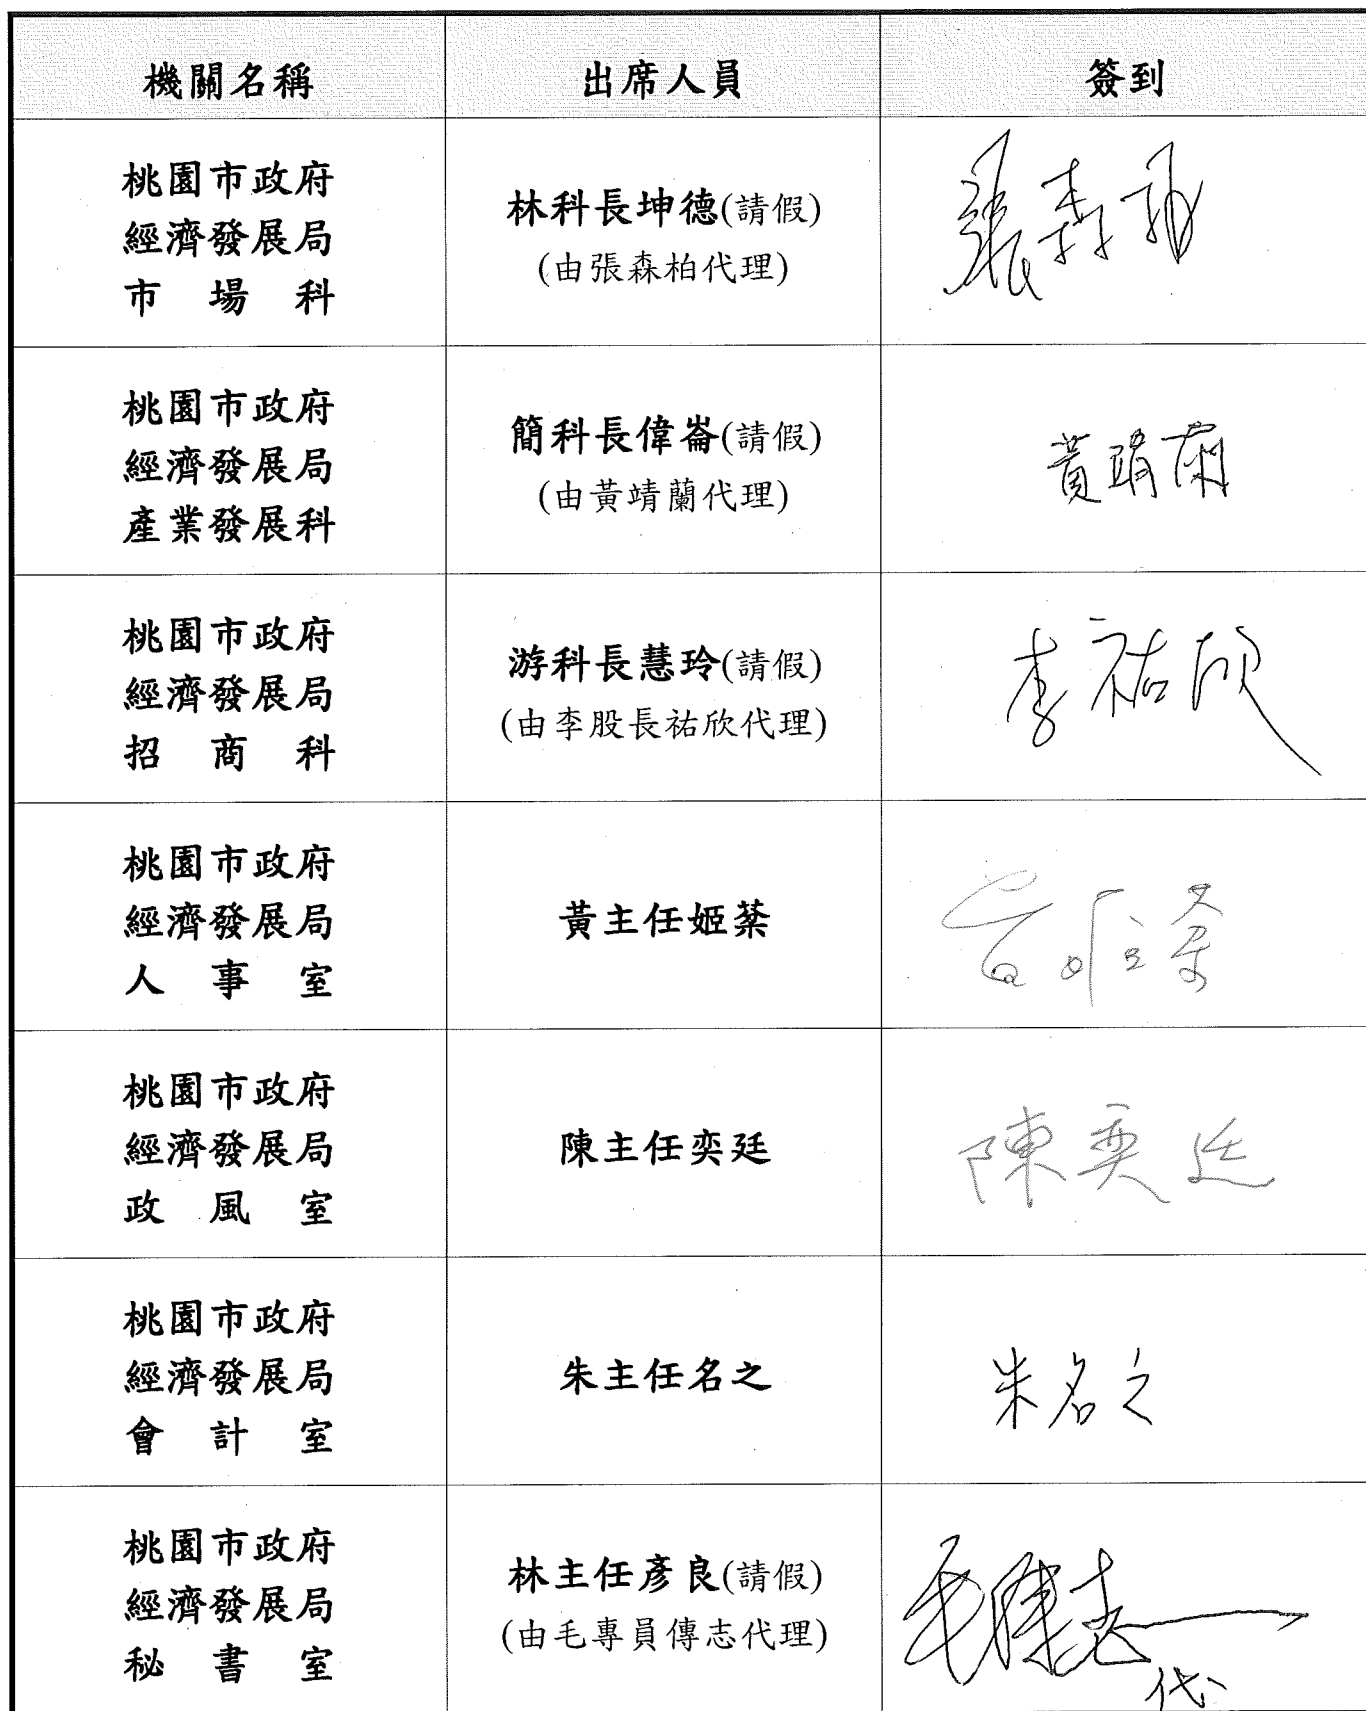 機關名稱 出席人員 簽到
桃園市政府
經濟發展局
市場科
林科長坤德(請假)
(由張森柏代理)
張森柏
桃園市政府
經濟發展局
產業發展科
簡科長偉崙(請假)
(由黃靖蘭代理)
黃靖蘭
桃園市政府
經濟發展局
招商科
游科長慧玲(請假)
(由李股長祐欣代理)
李祐欣
桃園市政府
經濟發展局
人事室
黃主任姬棻
桃園市政府
經濟發展局
政風室
陳主任奕廷
陳奕廷
桃園市政府
經濟發展局
會計室
朱主任名之
朱名之
桃園市政府
經濟發展局
秘書室
林主任彥良(請假)
(由毛專員傳志代理)
毛傳志
代